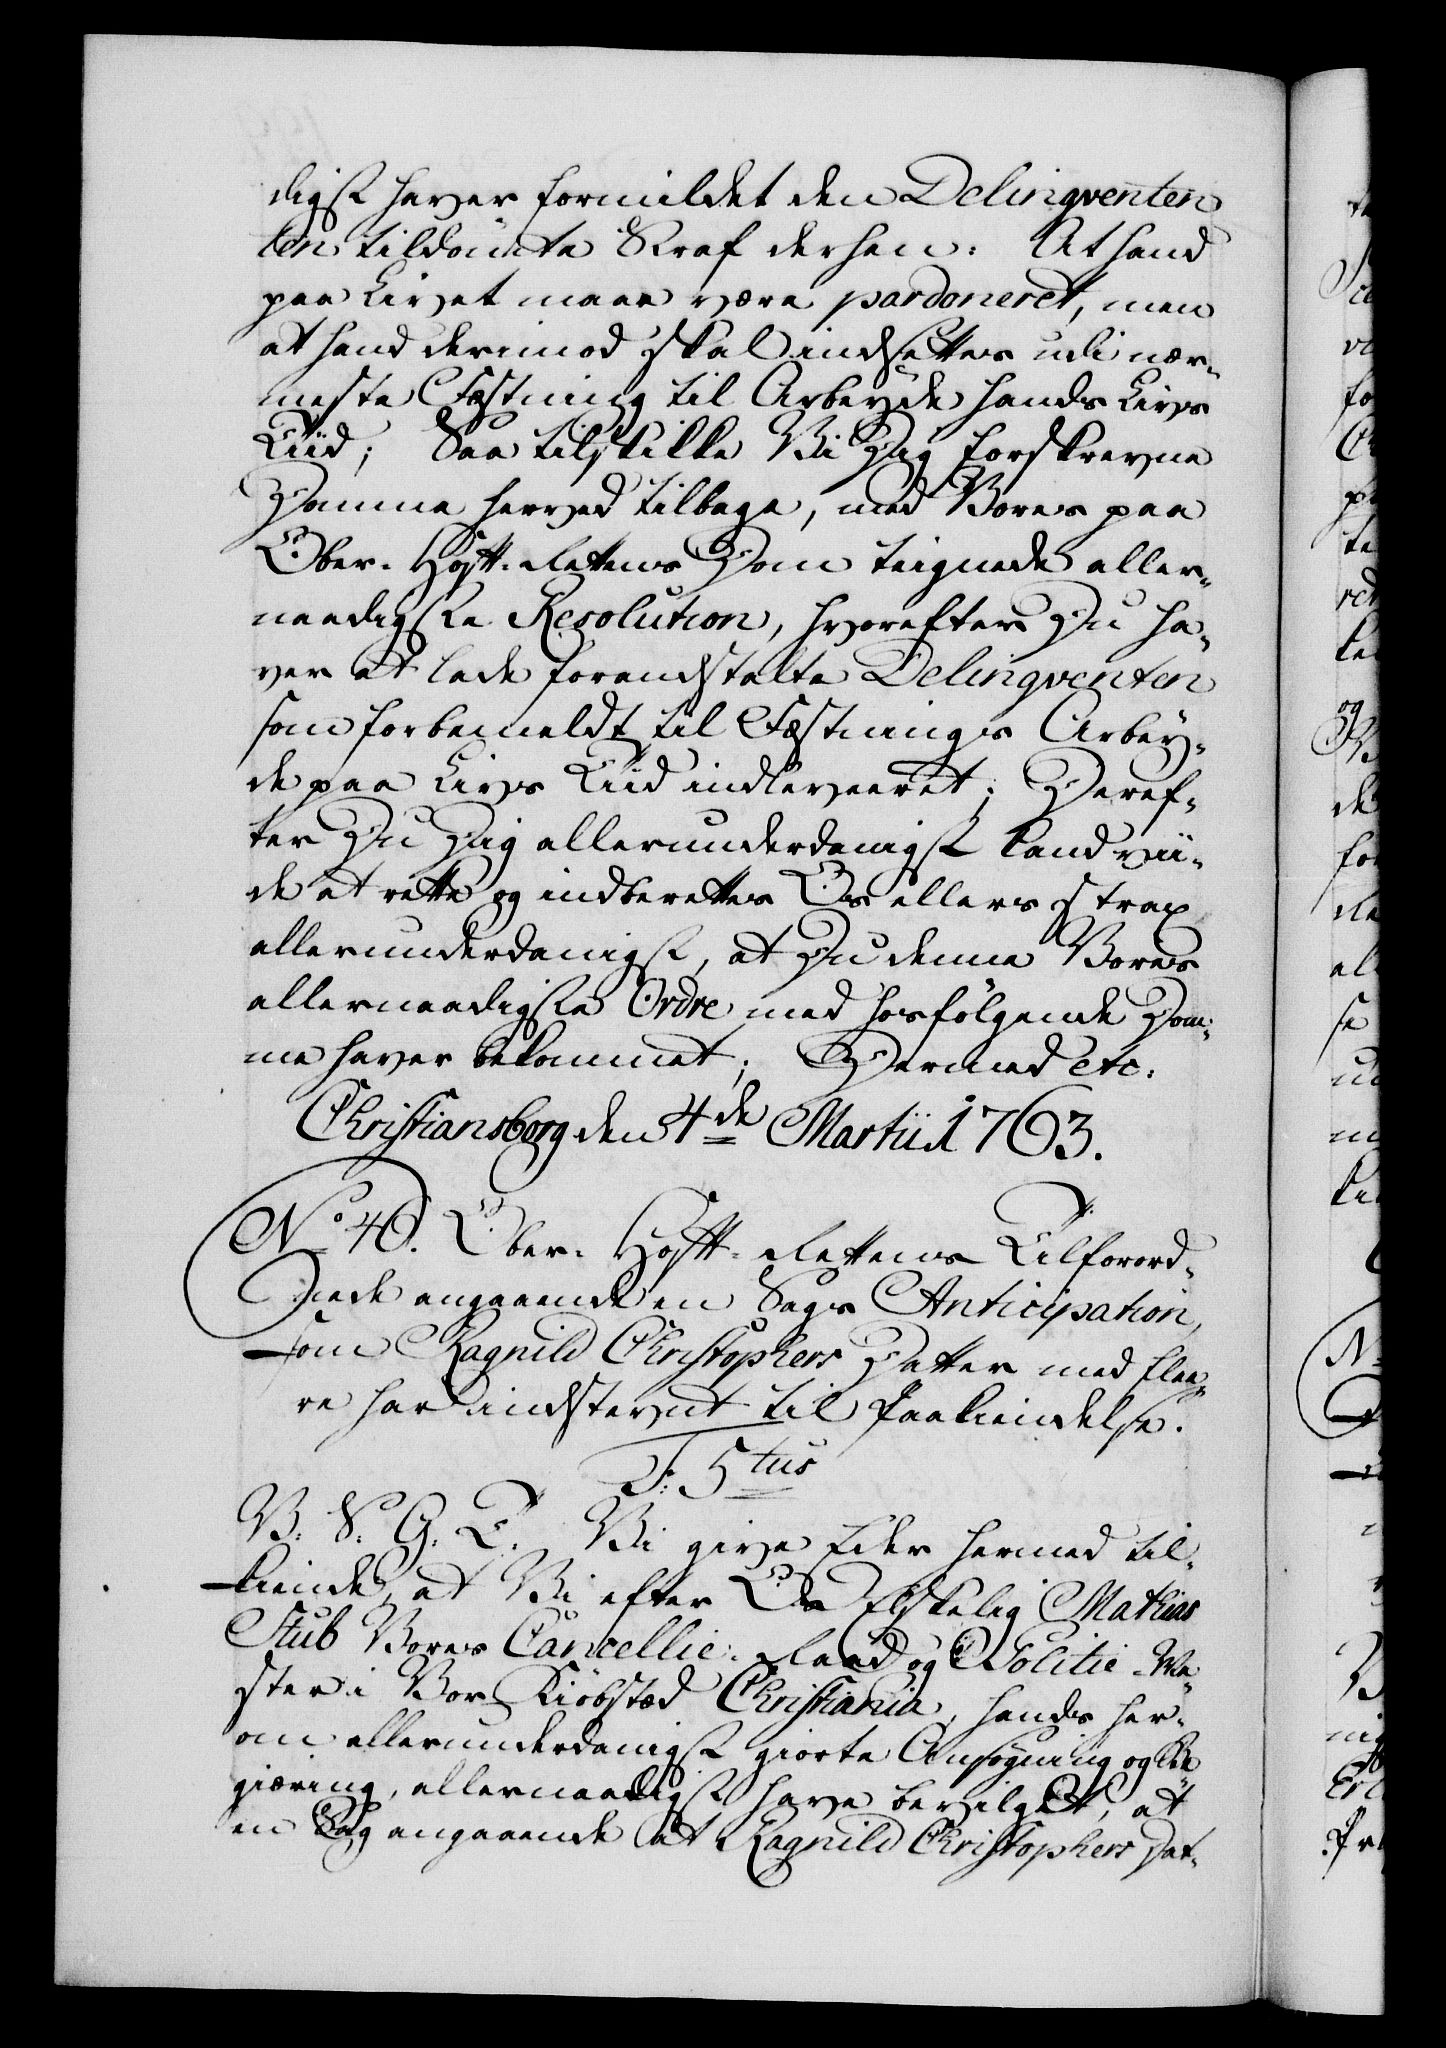 digst haver formildet den Delinqventen
len tildömte Straf derhen: At hand
paa Livet maae være pardoneret, men
at hand derimod skal indsettes udi nær-
meste Fæstning til Arbeyde hands Livs
Tiid; Saa tilskikke Vi Dig forskrevne
Domme herved tilbage, med Vores paa
Ober-Hoff-Rettens Dom teignede aller-
naadigste Resolution, hvorefter Du ha-
ver at lade foranstalte Delinqventen
som forbemeldt til Fæstnings Arbey-
de paa Livs Tiid indleveeret; Deref-
ter Du Dig allerunderdanigst kand vii-
de at rette og indberettes Os ellers strax
allerunderdanigst, at Du denne Vores
allernaadigste Ordre med hosfölgende Dom-
me haver bekommet; Dermed etc:
Christiansborg den 4de Martii 1763.
No 40. Ober-Hoff-Rettens Tilforord-
nede angaaende en Sags Anticipation,
som Ragnild Christophers Datter med flee-
re har indstevnt til Paakiendelse.
F: 5tus
V. S. G. T. Vi give Eder hermed til-
kiende, at Vi efter Os Elskelig Mathias
Stub Vores Cancellie-Raad og Politie-Me-
ster i Vor Kiöbstæd Christiania, hands her-
om allerunderdanigst giorte Ansögning og Be-
giæring, allernaadigst have bevilget, at
en Sag angaaende at Ragnild Christophers Dat-